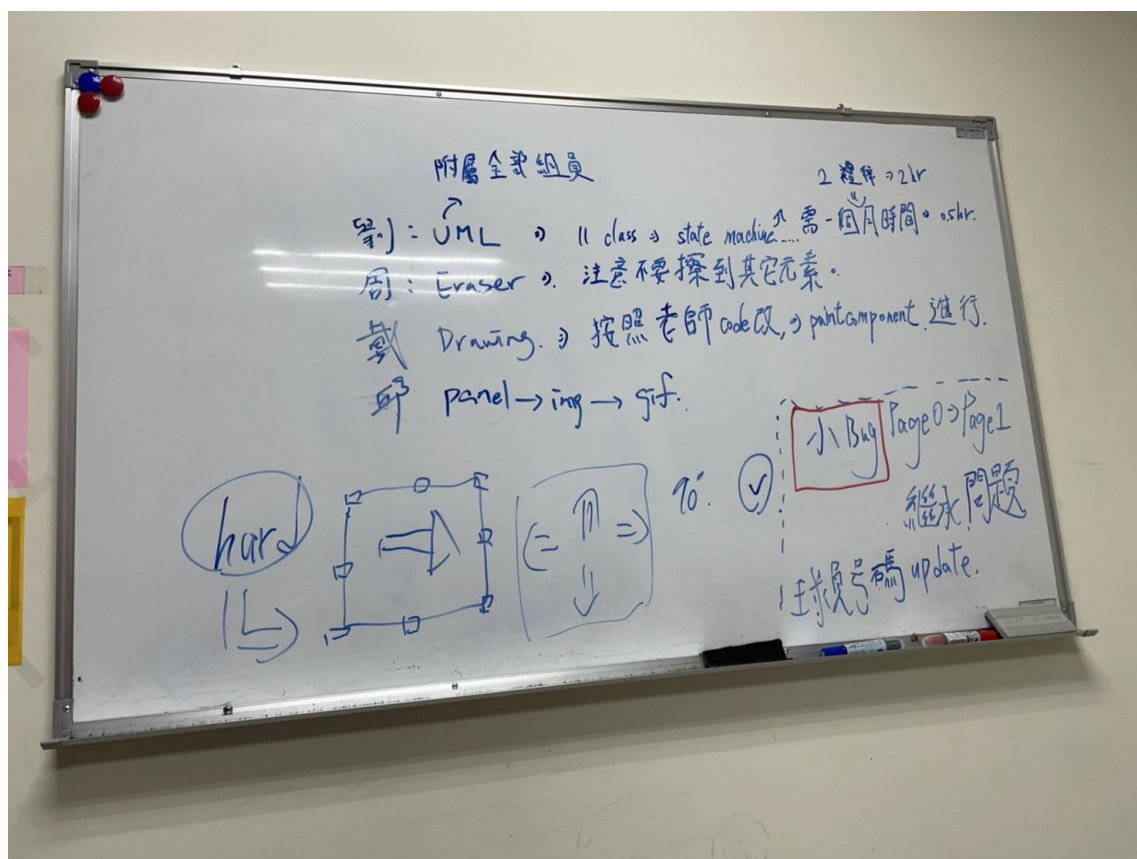 附屬全部組員
2 禮拜 => 2hr
劉: UML => 11 class => state machine..... 需一個月時間 => 0.5hr.
周: Eraser => 注意不要擦到其它元素。
戴 Drawing. => 按照老師code改, => paintcomponent 進行.
邱 panel → img → gif.
小Bug Page0 => Page1
繼承問題
球員号碼 update.
hard
90°.